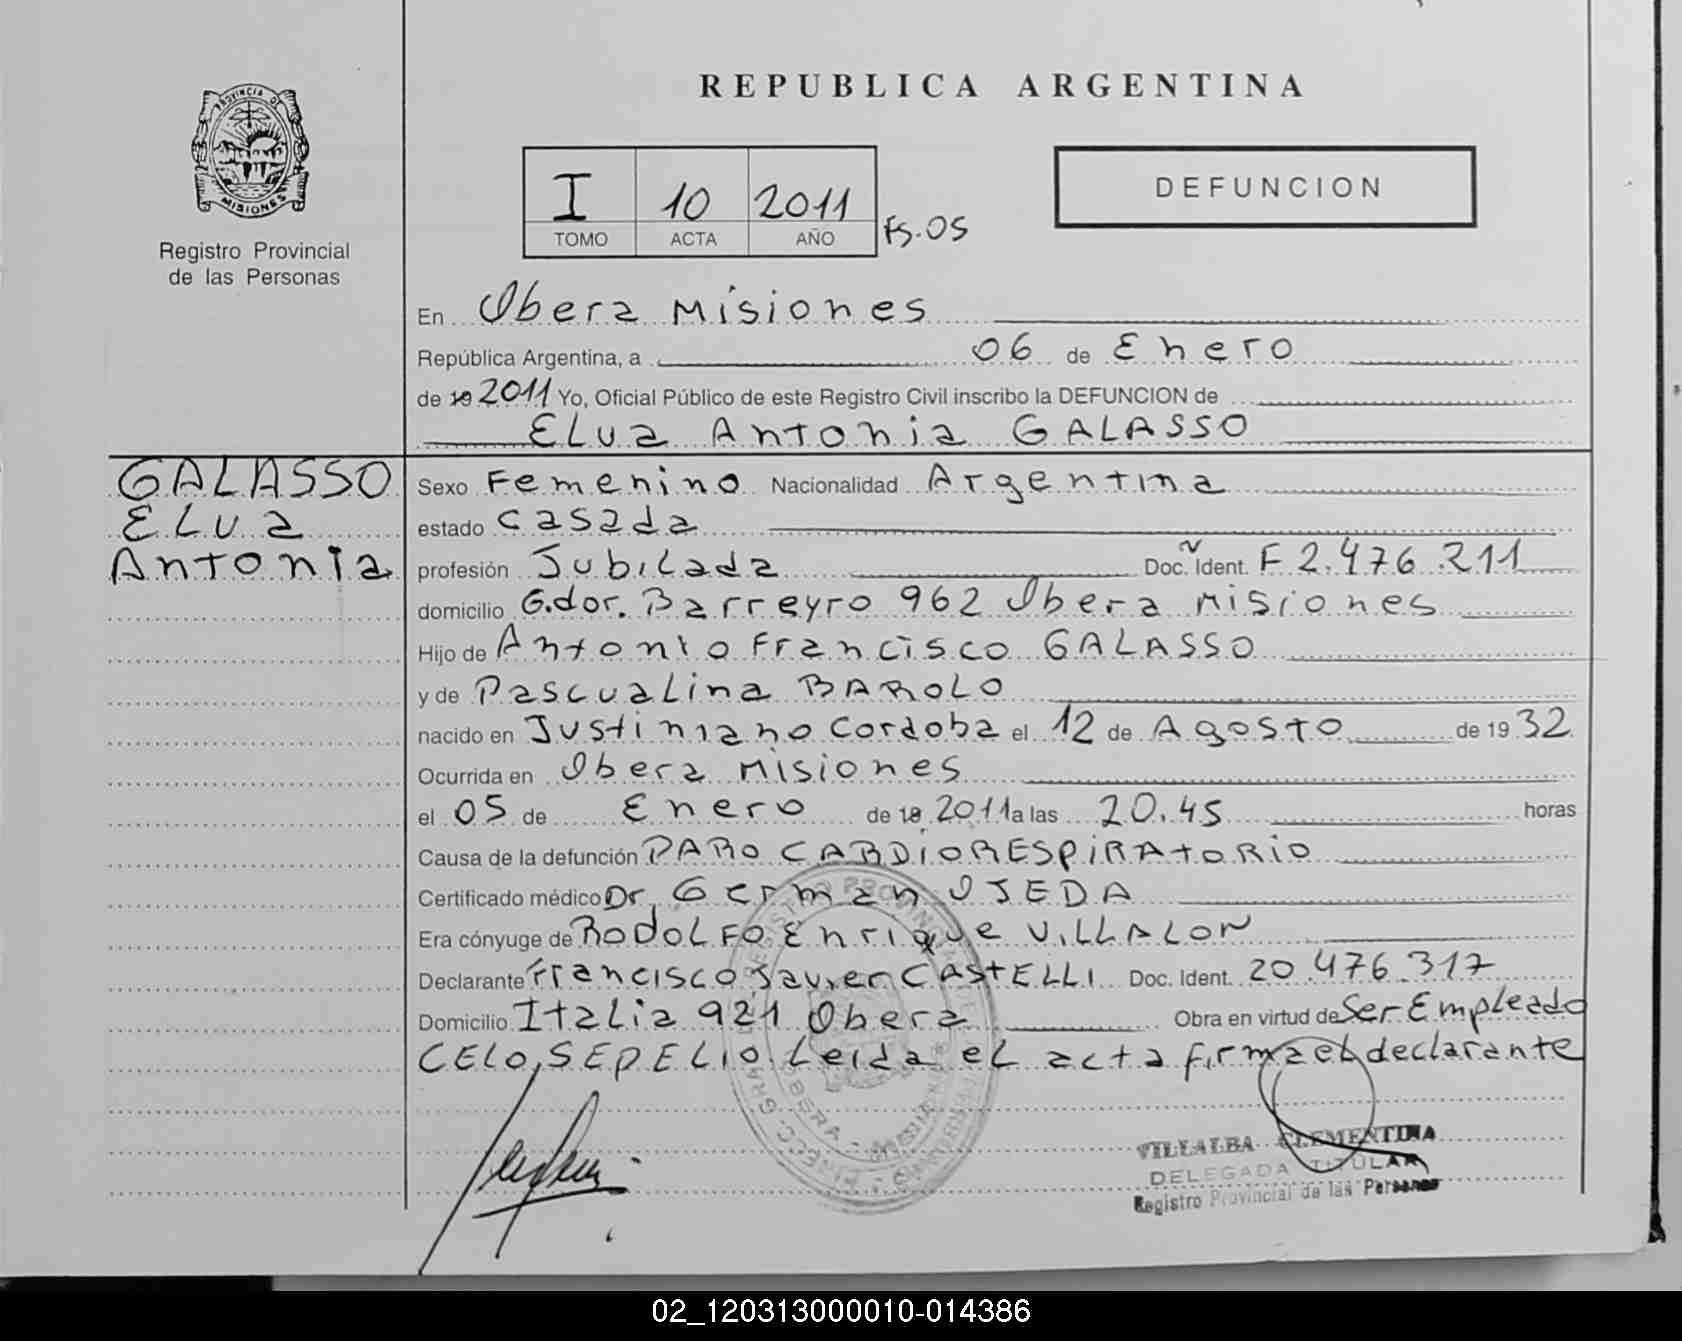 REPUBLICA ARGENTINA
PROVINCIA DE
MISIONES
Registro Provincial
de las Personas
I 10 2011
TOMO ACTA AÑO
Fs. 05
DEFUNCION
En Obera Misiones
República Argentina, a 06 de Enero
de 19 2011 Yo, Oficial Público de este Registro Civil inscribo la DEFUNCION de
Elva Antonia GALASSO
GALASSO
Elva
Antonia
Sexo Femenino Nacionalidad Argentina
estado casada
profesión Jubilada Doc. Ident. F 2.476.211
domicilio G.dor. Barreyro 962 Obera Misiones
Hijo de Antonio Francisco GALASSO
y de Pascualina BAROLO
nacido en Justiniano Cordoba el 12 de Agosto de 19 32
Ocurrida en Obera Misiones
el 05 de Enero de 19 2011 a las 20.45 horas
Causa de la defunción PARO CARDIORESPIRATORIO
Certificado médico Dr. German OJEDA
Era cónyuge de RODOLFO Enrique VILLALON
Declarante Francisco Javier CASTELLI Doc. Ident. 20.476.317
Domicilio Italia 921 Obera Obra en virtud de Ser Empleado
CELO SEPELIO. Leida el acta firma el declarante
VILLALBA CLEMENTINA
DELEGADA TITULAR
Registro Provincial de las Personas
02_120313000010-014386